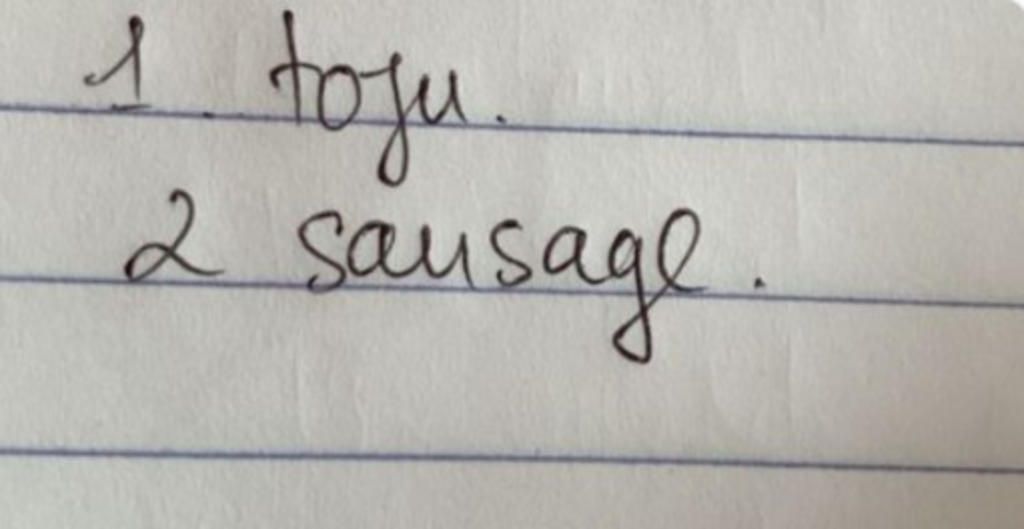 1. tofu.
2 sausage.